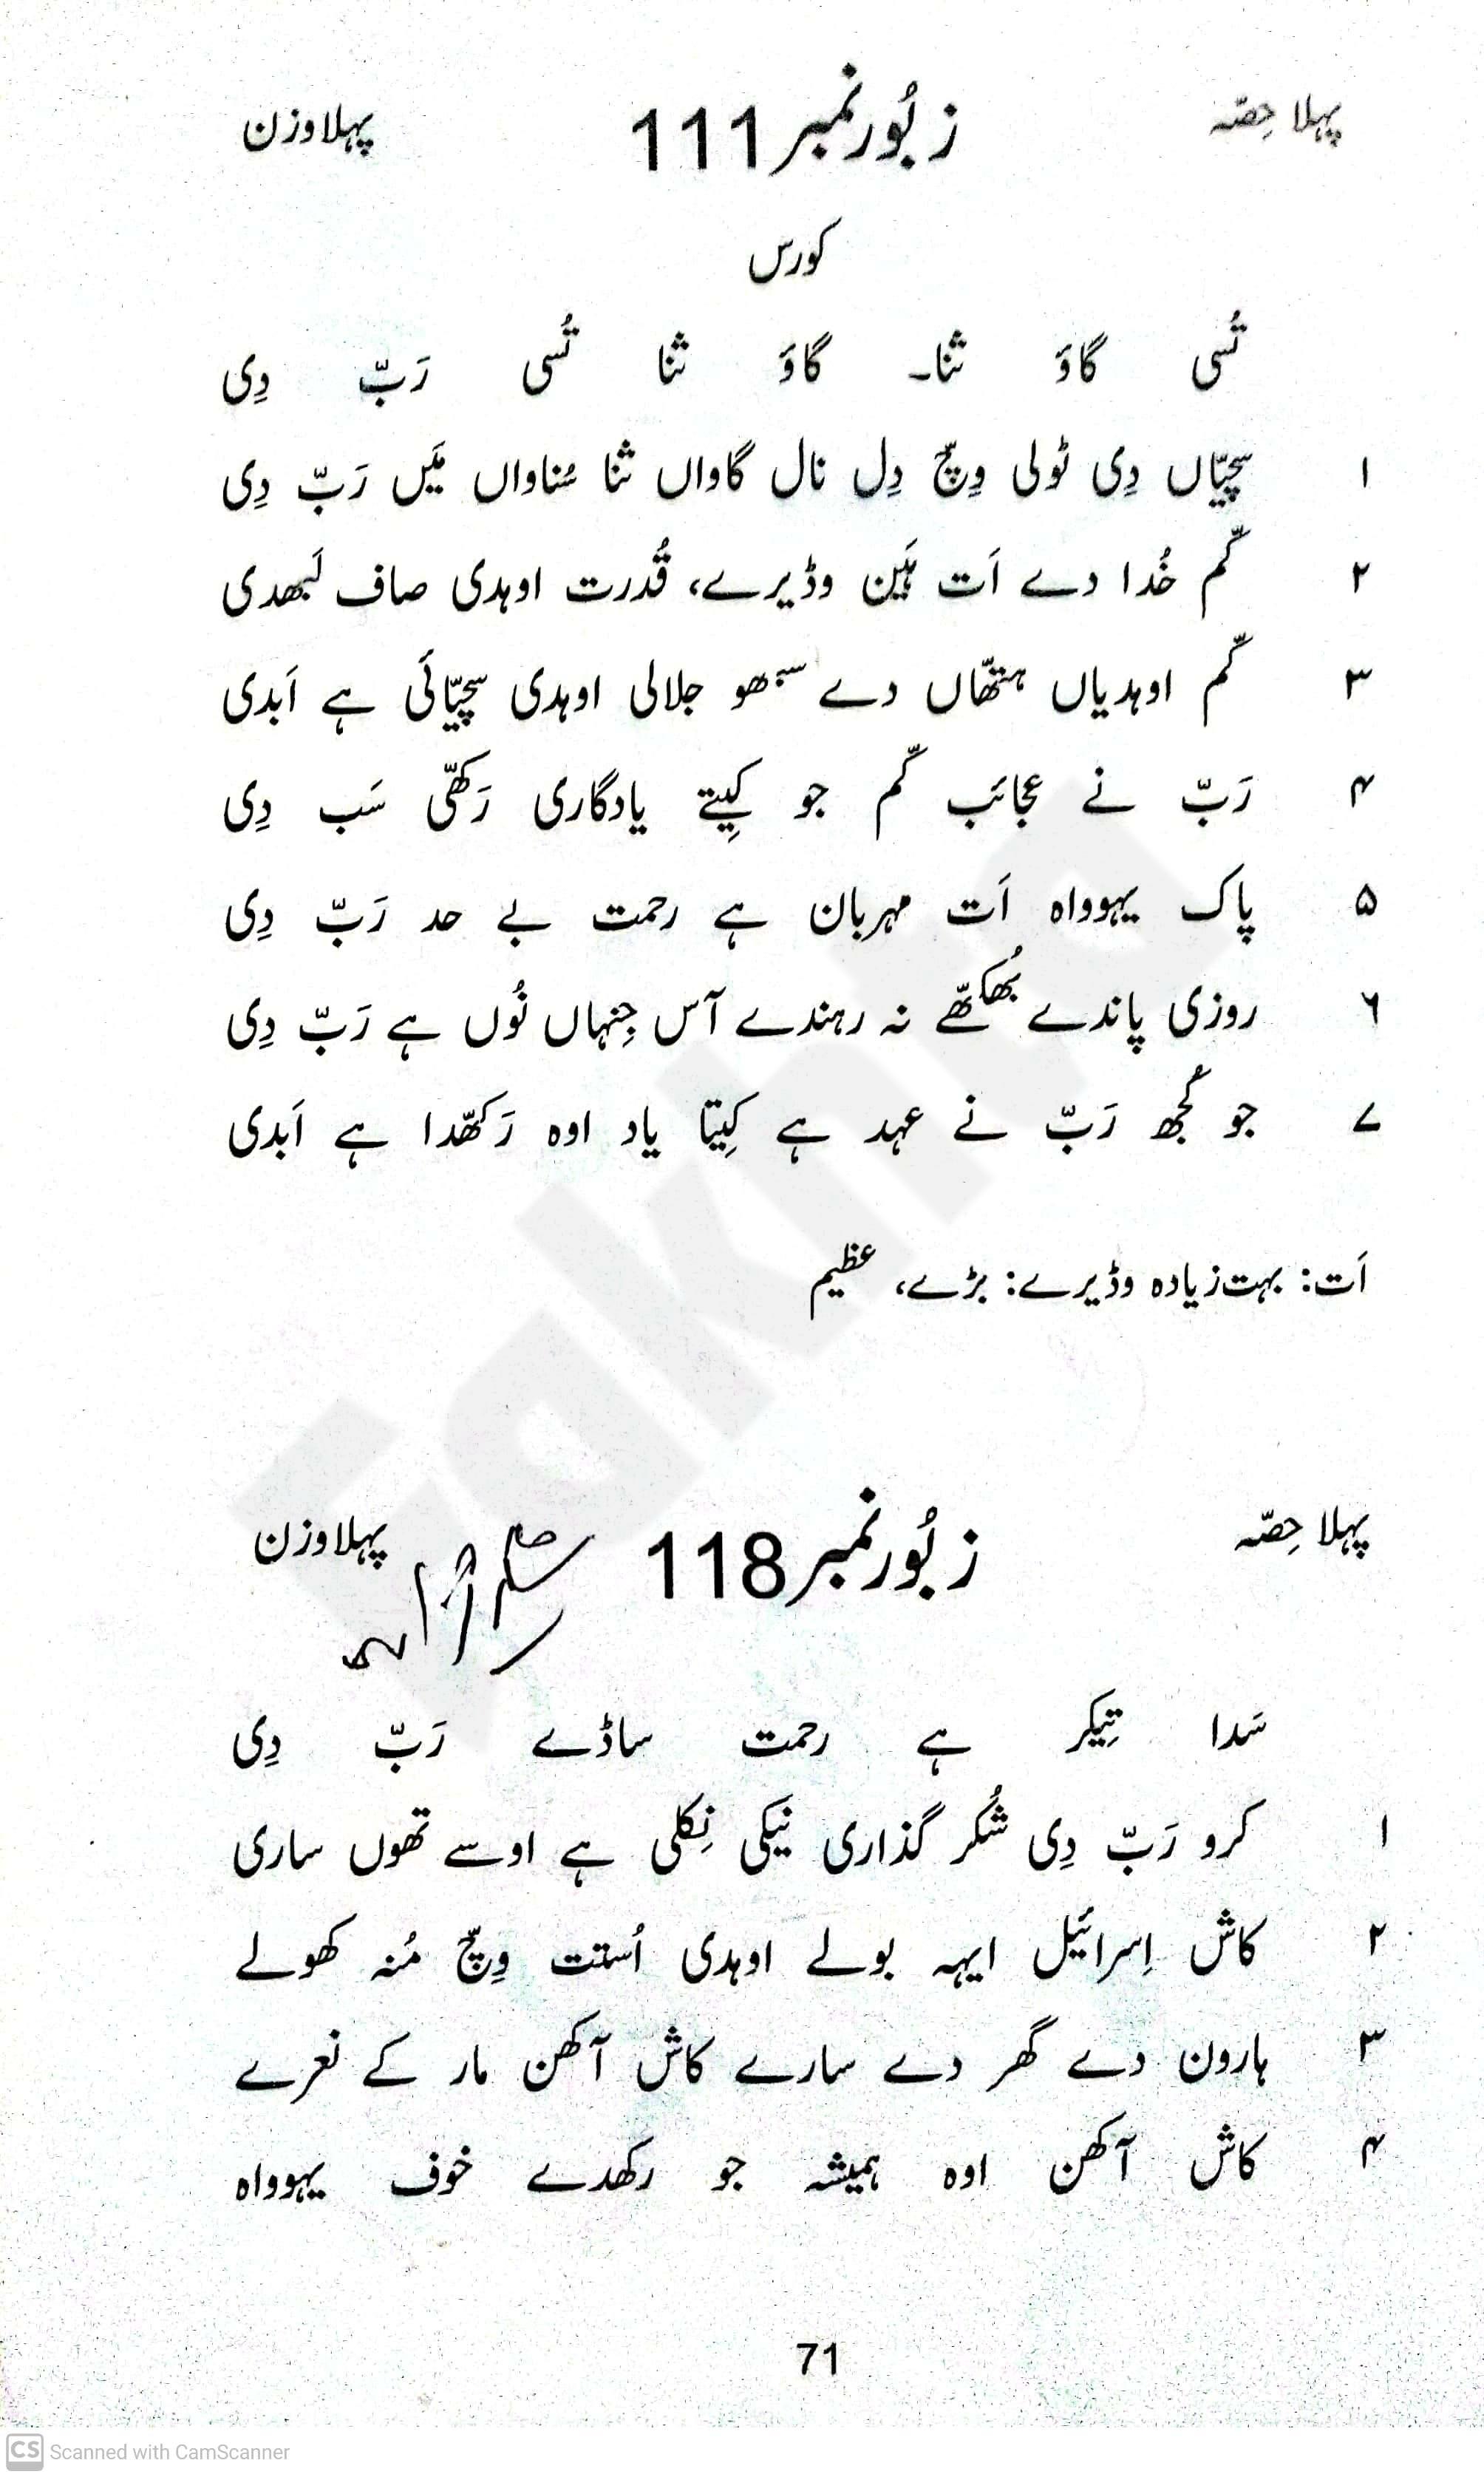 پہلا حِصّہ زبُور نمبر 111 پہلا وزن
کورس
تُسی گاؤَ ثنا۔ گاؤَ ثنا تُسی رَبّ دِی
۱ سچیّاں دِی ٹولی وِچّ دِل نال گاواں ثنا سُناواں مَیں رَبّ دِی
۲ کّم خُدا دے اَت ہَین وڈیرے، قُدرت اوہدی صاف لَبھدی
۳ کّم اوہدیاں ہتھّاں دے سبھو جلالی اوہدی سچیّائی ہے اَبدی
۴ رَبّ نے عجائب کّم جو کِیتے یادگاری رَکھّی سَب دِی
۵ پاک یہوواہ اَت مہربان ہے رحمت بے حد رَبّ دِی
۶ روزی پاندے بُھکھّے نہ رہندے آس جِنہاں نُوں ہے رَبّ دِی
۷ جو کُجھ رَبّ نے عہد ہے کِیتا یاد اوہ رَکھّدا ہے اَبدی
اَت: بہت زیادہ وڈیرے: بڑے، عظیم
پہلا حِصّہ زبُور نمبر 118 پہلا وزن
سَدا تِیکر ہے رحمت ساڈے رَبّ دِی
۱ کرو رَبّ دِی شُکر گذاری نَیکی نِکلی ہے اوسے تھوں ساری
۲ کاش اِسرائیل ایہہ بولے اوہدی اُستت وِچّ مُنہ کھولے
۳ ہارون دے گھر دے سارے کاش آکھن مار کے نعرے
۴ کاش آکھن اوہ ہمیشہ جو رکھدے خوف یہوواہ
71
CS Scanned with CamScanner